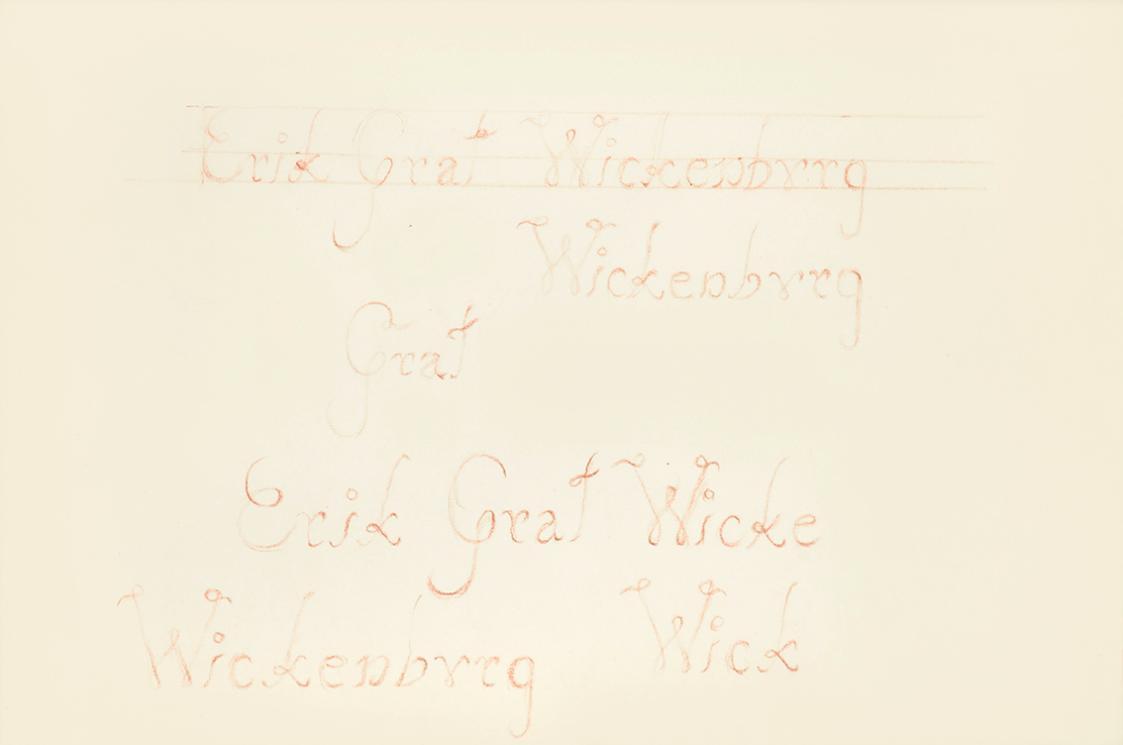 Erik Graf Wickenbvrg
Wickenbvrg
Graf
Erik Graf Wicke
Wickenbvrg Wick